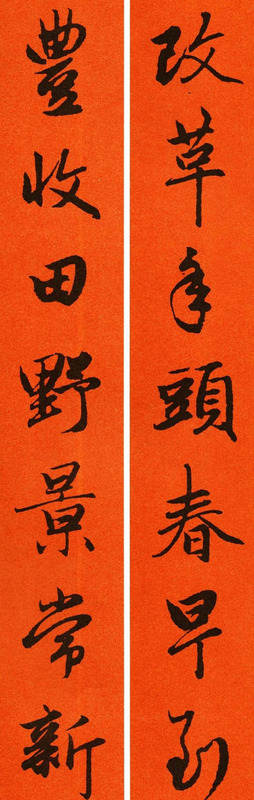 改草年頭春早到
豐收田野景常新